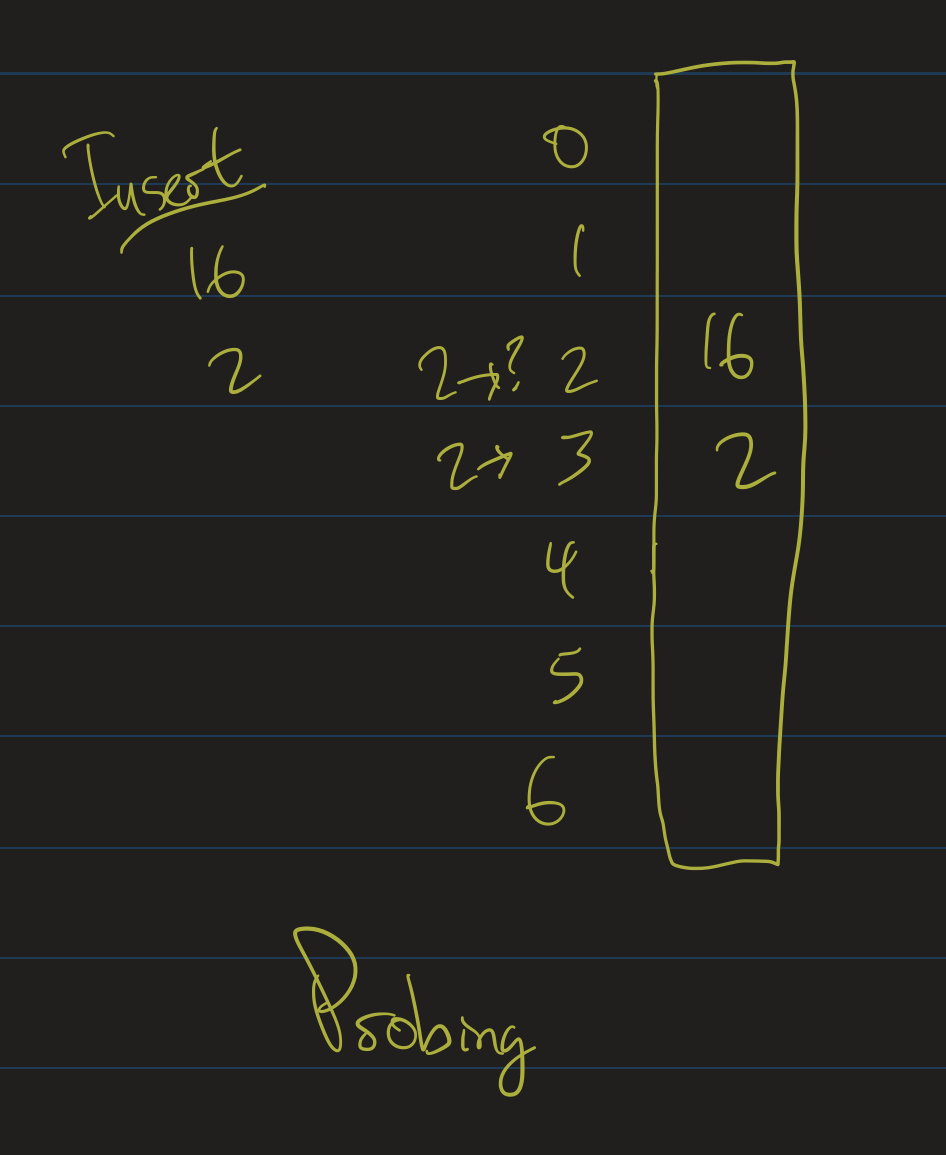 Insert
0
1
16
2
2→? 2 16
2→ 3 2
4
5
6
Probing